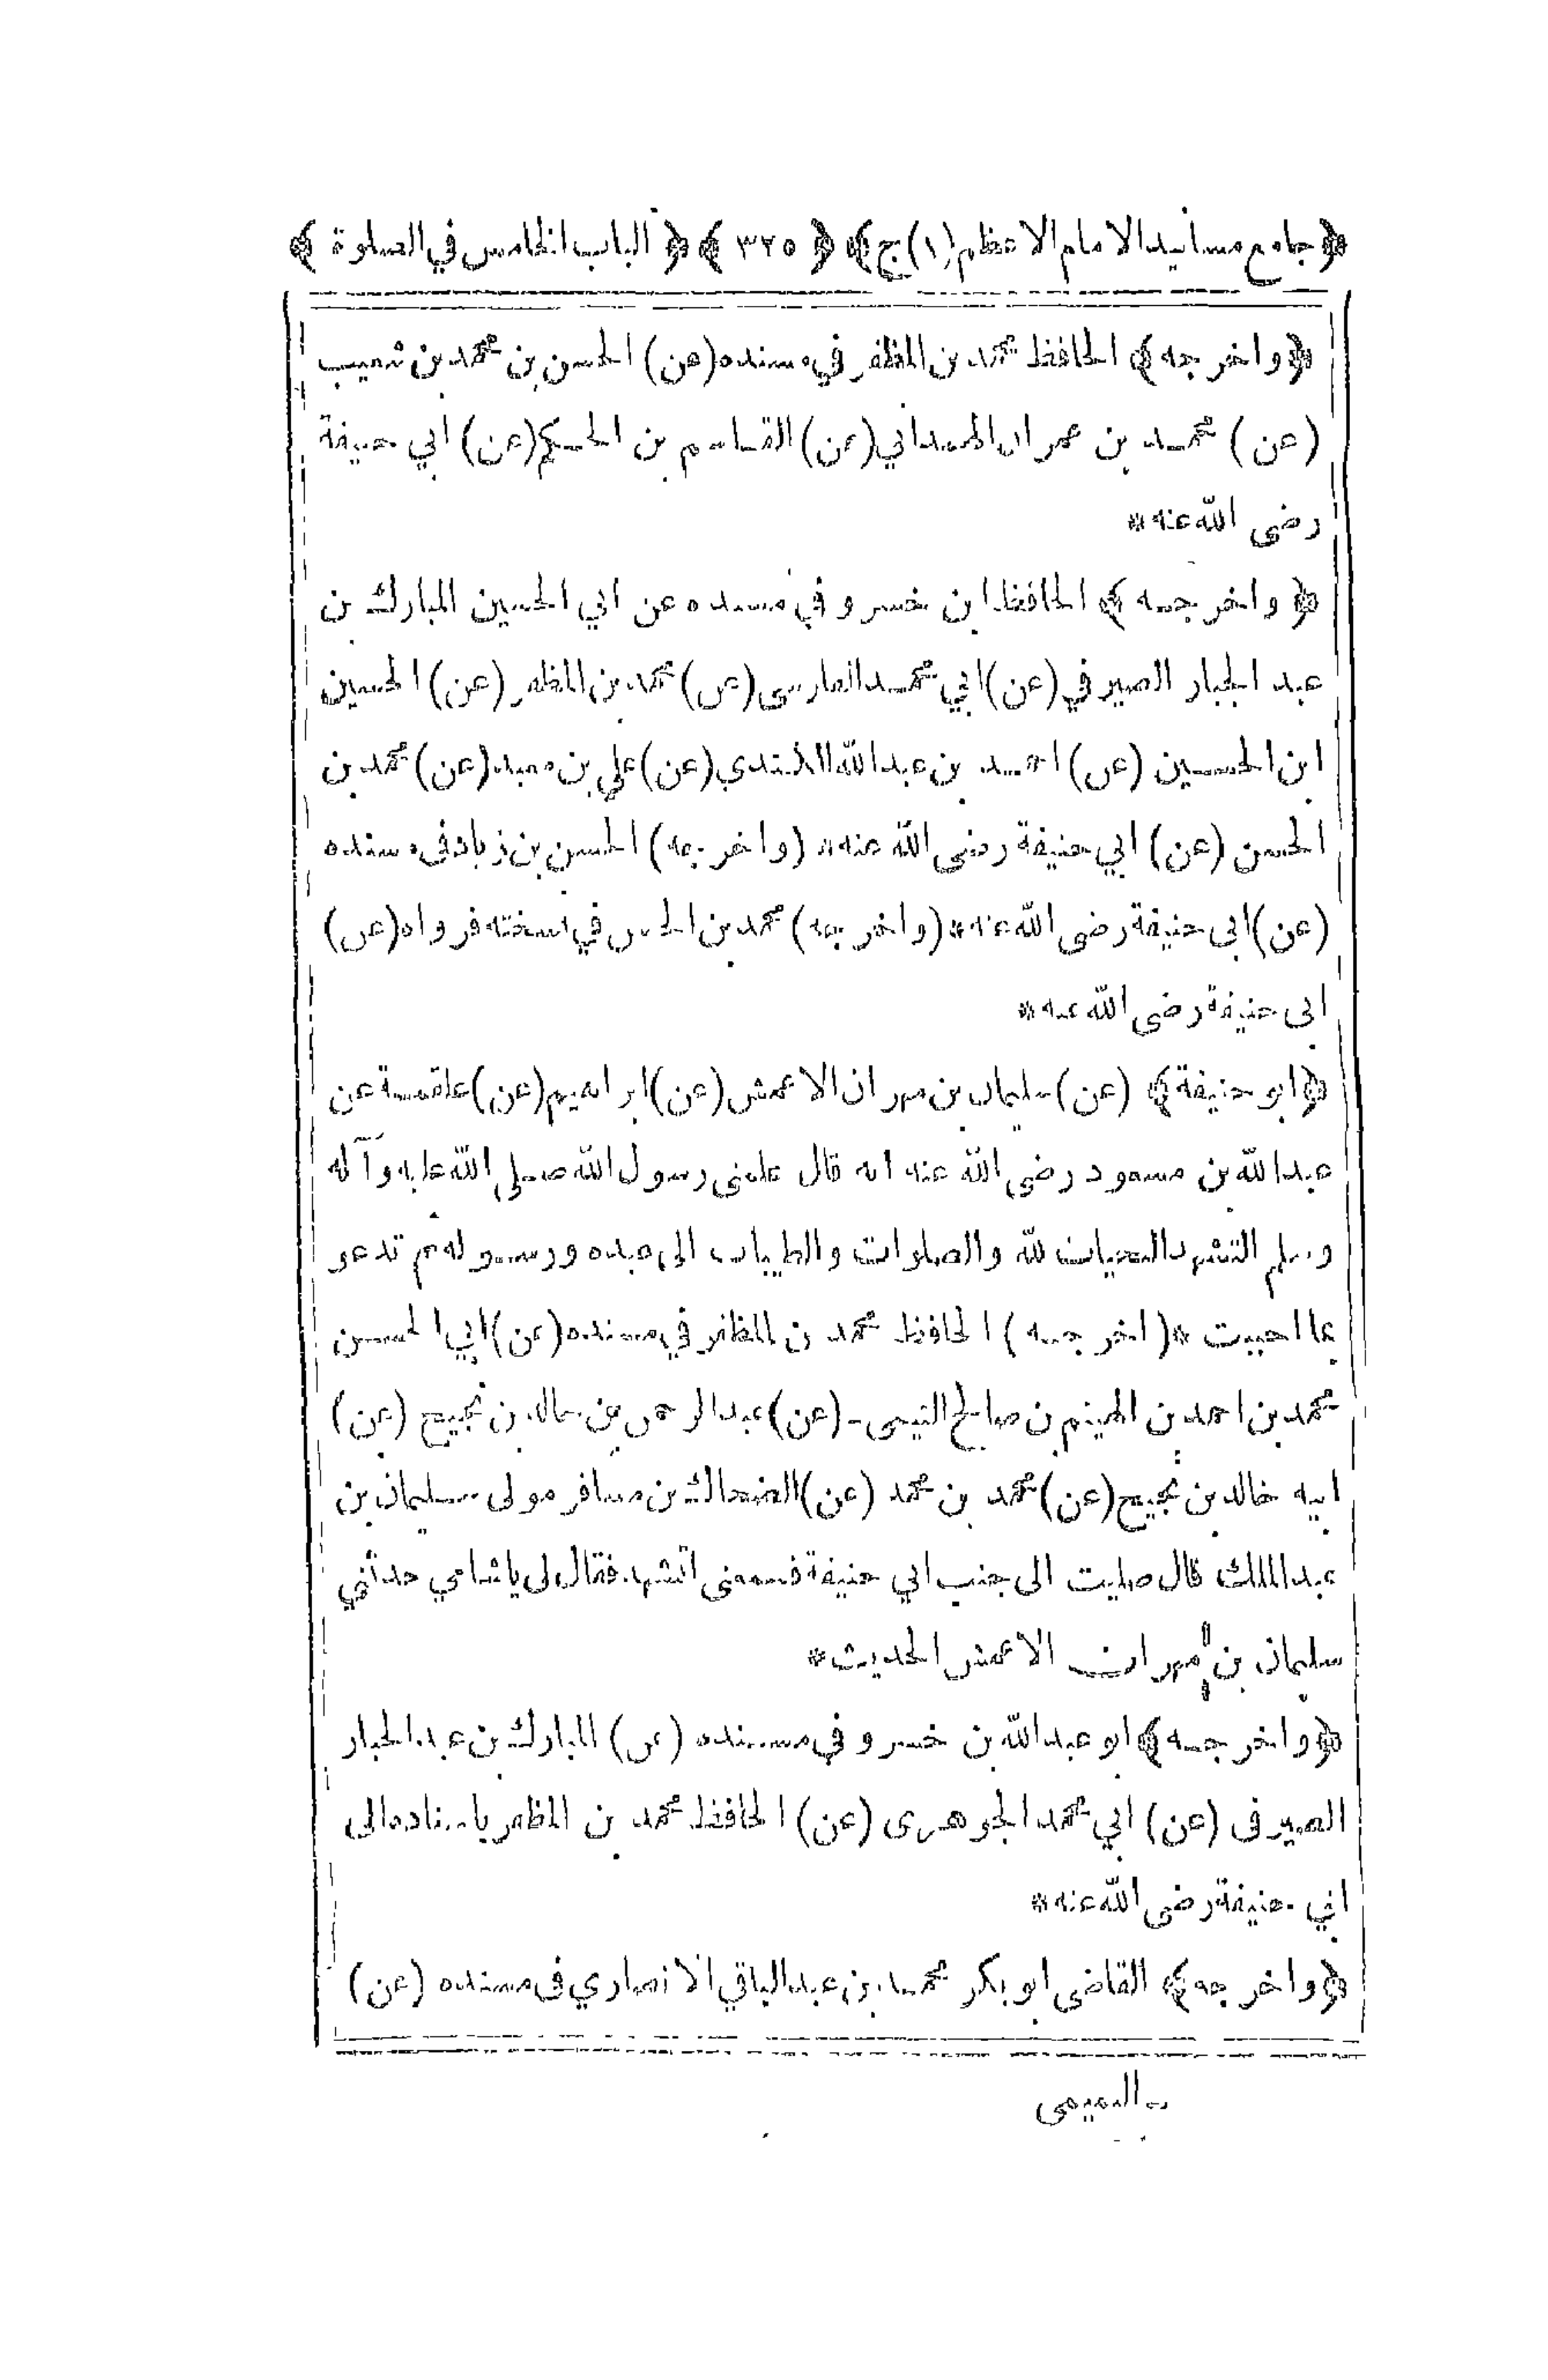 ﴿جامع مسانيد الامام الاعظم (١) ج﴾ ﴿ ٣٢٥ ﴾ ﴿ الباب الخامس في الصلوة ﴾
﴿واخرجه﴾ الحافظ محمد بن المظفر في مسنده (عن) الحسن بن محمد بن شعيب
(عن) محمد بن عمران الهمداني (عن) القاسم بن الحكم (عن) ابي حنيفة
رضى الله عنه *
﴿ واخرجه ﴾ الحافظ ابن خسرو في مسنده عن ابي الحسين المبارك بن
عبد الجبار الصيرفي (عن) ابي محمد الفارسى (عن) محمد بن المظفر (عن) الحسين
ابن الحسين (عن) احمد بن عبد الله الكندي (عن) علي بن معبد (عن) محمد بن
الحسن (عن) ابي حنيفة رضى الله عنه * (واخرجه) الحسن بن زياد في مسنده
(عن) ابى حنيفة رضى الله عنه * (واخرجه) محمد بن الحسن في نسخته فرواه (عن)
ابى حنيفة رضى الله عنه *
﴿ابو حنيفة﴾ (عن) سليمان بن مهران الاعمش (عن) ابراهيم (عن) علقمة عن
عبد الله بن مسعود رضى الله عنه انه قال علمنى رسول الله صلى الله عليه وآله
وسلم التشهد التحيات لله والصلوات والطيبات الى عبده ورسوله ثم تدعو
بما احببت * (اخرجه) الحافظ محمد بن المظفر في مسنده (عن) ابي الحسن
محمد بن احمد بن الهيثم بن صالح التيمى ـ (عن) عبد الرحمن بن خالد بن نجيح (عن)
ابيه خالد بن نجيح (عن) محمد بن محمد (عن) الضحاك بن مسافر مولى سليمان بن
عبد الملك قال صليت الى جنب ابي حنيفة فسمعنى اتشهد فقال لى يا شامي حدثني
سليمان بن مهران الاعمش الحديث *
﴿واخرجه﴾ ابو عبد الله بن خسرو في مسنده (عن) المبارك بن عبد الجبار
الصيرفى (عن) ابي محمد الجوهرى (عن) الحافظ محمد بن المظفر باسناده الى
ابي حنيفة رضى الله عنه *
﴿واخرجه﴾ القاضى ابو بكر محمد بن عبد الباقي الانصاري فى مسنده (عن)
ـ التميمى